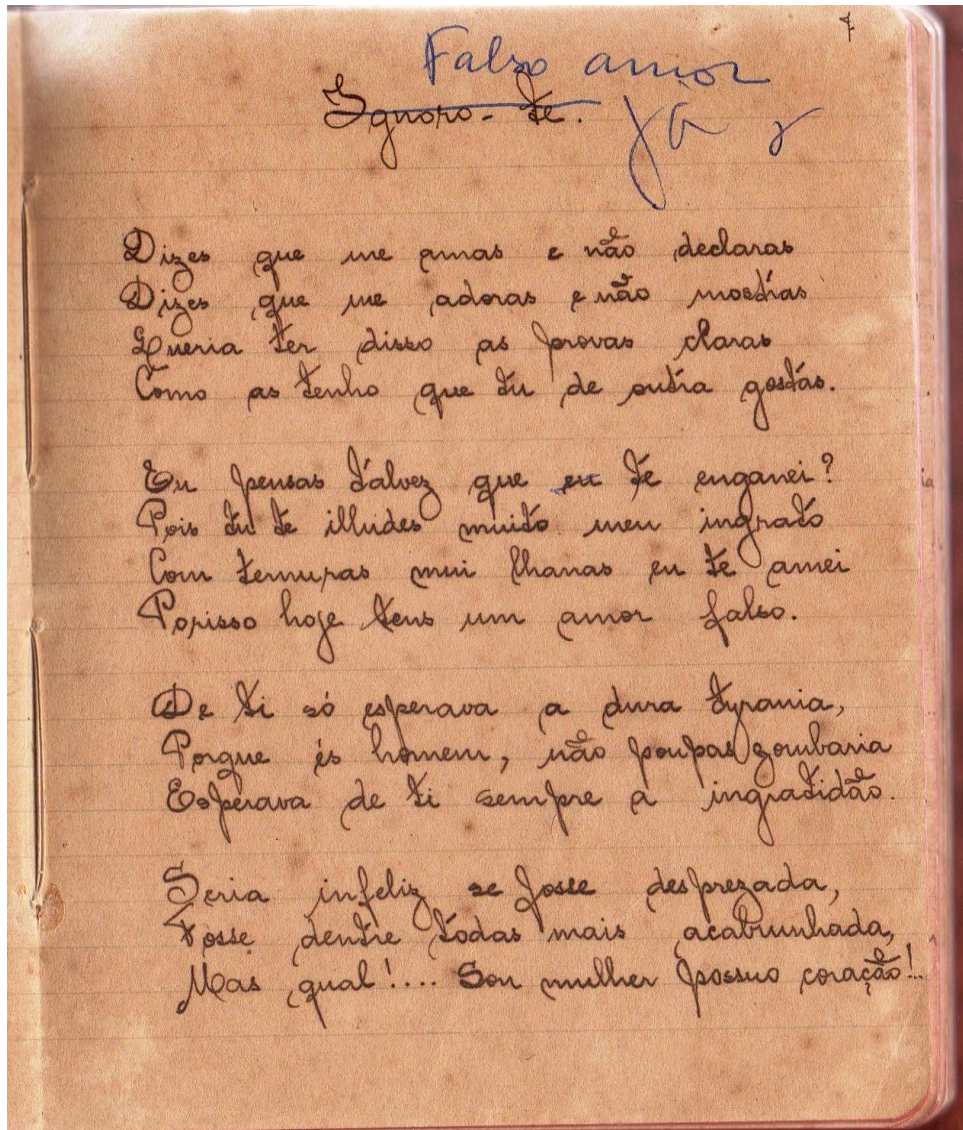 Falso amor
Ignoro-te.
Dizes que me amas e não declaras
Dizes que me adoras e não mostras
Queria ter disso as provas claras
Como as tenho que tu de outra gostas.
Eu pensas talvez que eu te enganei?
Pois tu te illudes muito meu ingrato
Com ternuras mui lhanas eu te amei
Porisso hoje tens um amor falso.
De ti só esperava a dura tyrania,
Porque és homem, não poupas zombaria
Esperava de ti sempre a ingratidão.
Seria infeliz se fosse desprezada,
Fosse dentre todas mais acabrunhada,
Mas qual!.... Sou mulher possuo coração!..